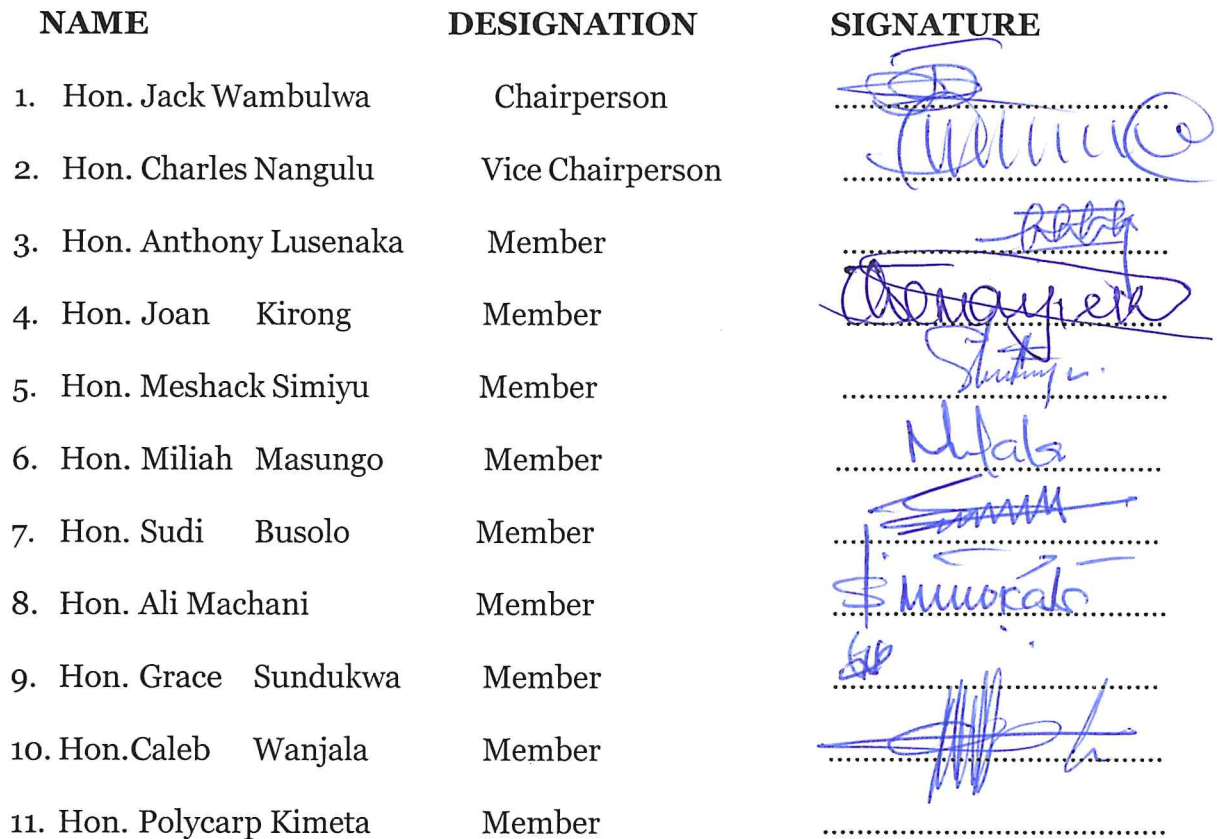 NAME DESIGNATION SIGNATURE
1. Hon. Jack Wambulwa Chairperson ........................
2. Hon. Charles Nangulu Vice Chairperson ........................
3. Hon. Anthony Lusenaka Member ........................
4. Hon. Joan Kirong Member ........................
5. Hon. Meshack Simiyu Member ........................
6. Hon. Miliah Masungo Member ........................
7. Hon. Sudi Busolo Member ........................
8. Hon. Ali Machani Member ........................
9. Hon. Grace Sundukwa Member ........................
10. Hon.Caleb Wanjala Member ........................
11. Hon. Polycarp Kimeta Member ........................